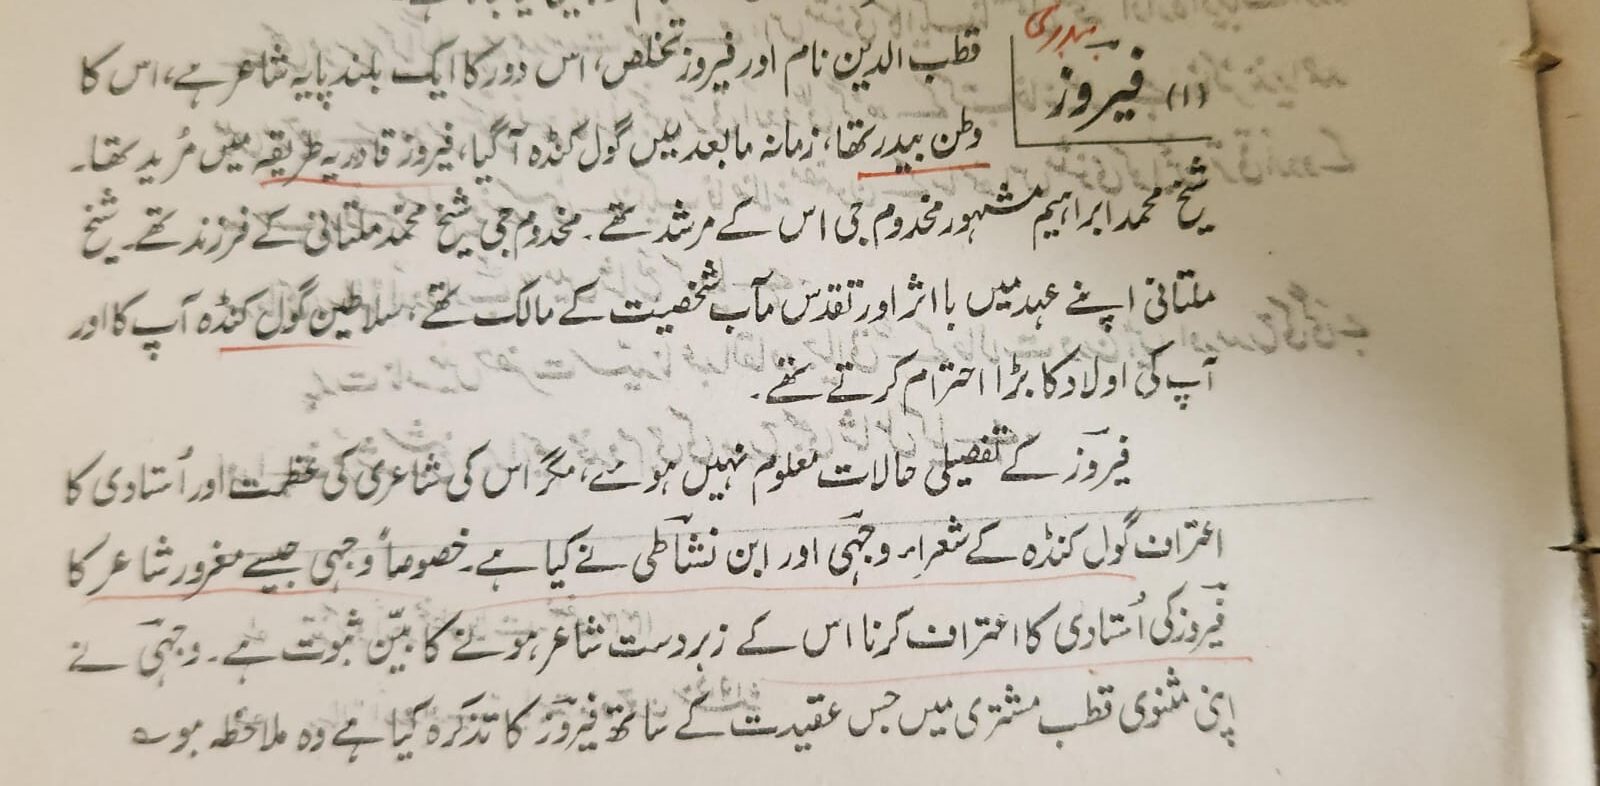 بیدری
(۱) فیروز
قطب الدین نام اور فیروز تخلص، اس دور کا ایک بلند پایہ شاعر ہے، اس کا
وطن بیدر تھا، زمانہ مابعد میں گول کنڈہ آگیا، فیروز قادریہ طریقہ میں مُرید تھا۔
شیخ محمد ابراہیم مشہور مخدوم جی اس کے مرشد تھے۔ مخدوم جی شیخ محمد ملتانی کے فرزند تھے۔ شیخ
ملتانی اپنے عہد میں بااثر اور تقدس مآب شخصیت کے مالک تھے، سلاطین گول کنڈہ آپ کا اور
آپ کی اولاد کا بڑا احترام کرتے تھے۔
فیروزؔ کے تفصیلی حالات معلوم نہیں ہوئے، مگر اس کی شاعری کی عظمت اور اُستادی کا
اعتراف گول کنڈہ کے شعراء وجہیؔ اور ابن نشاطیؔ نے کیا ہے۔ خصوصاً وجہی جیسے مغرور شاعر کا
فیروزؔ کی اُستادی کا اعتراف کرنا اس کے زبردست شاعر ہونے کا بیّن ثبوت ہے۔ وجہیؔ نے
اپنی مثنوی قطب مشتری میں جس عقیدت کے ساتھ فیروزؔ کا تذکرہ کیا ہے وہ ملاحظہ ہو؎